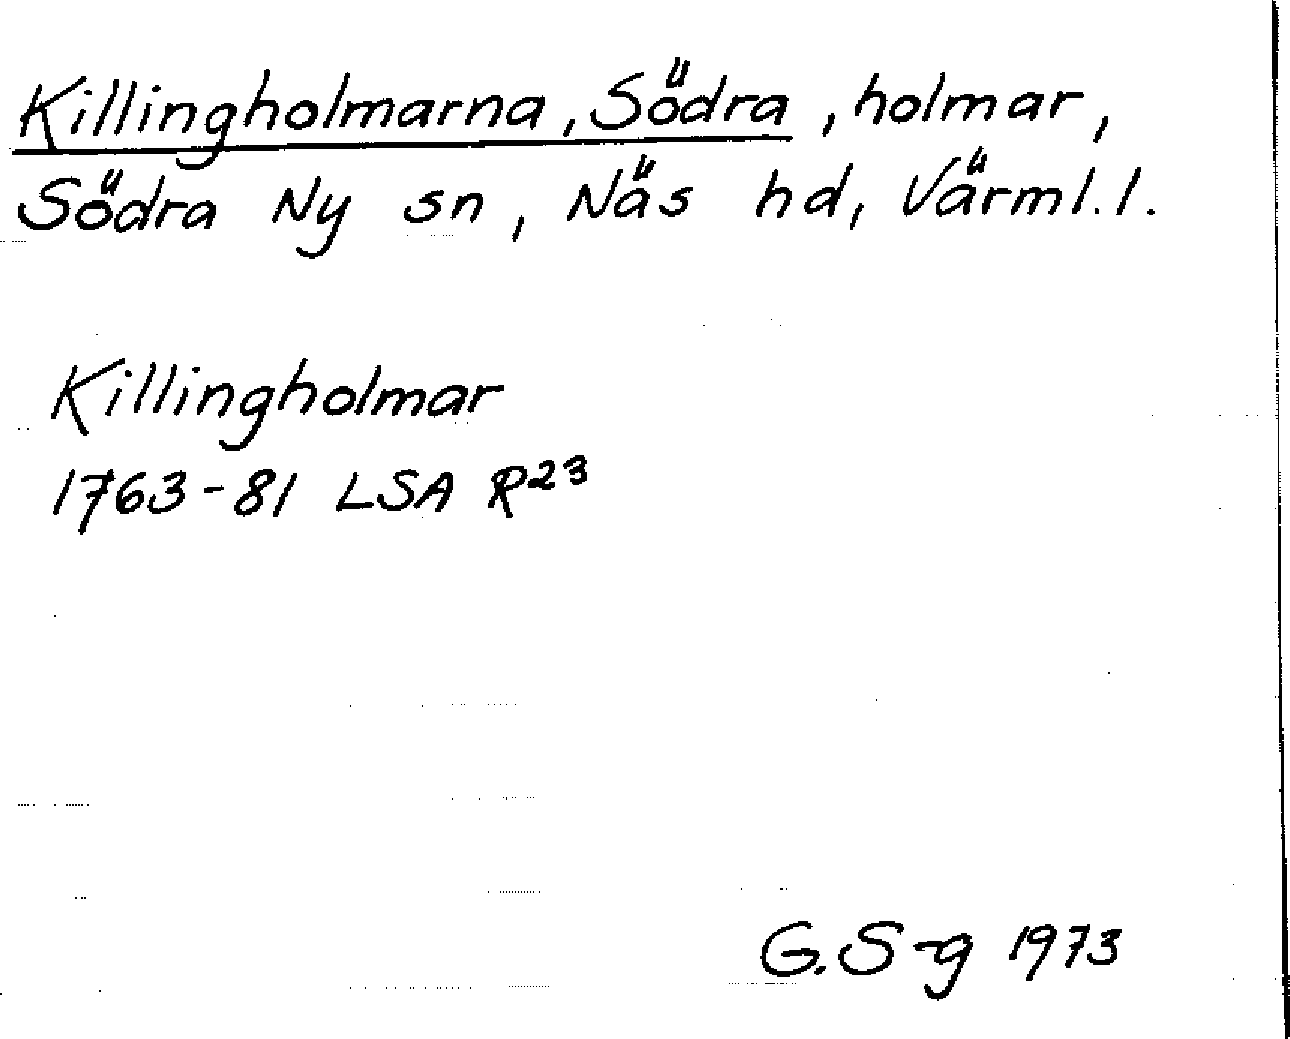 Killingholmarna, Södra, holmar,
Södra Ny sn, Näs hd, Värml. l.
Killingholmar
1763-81 LSA R23
G. S-g 1973